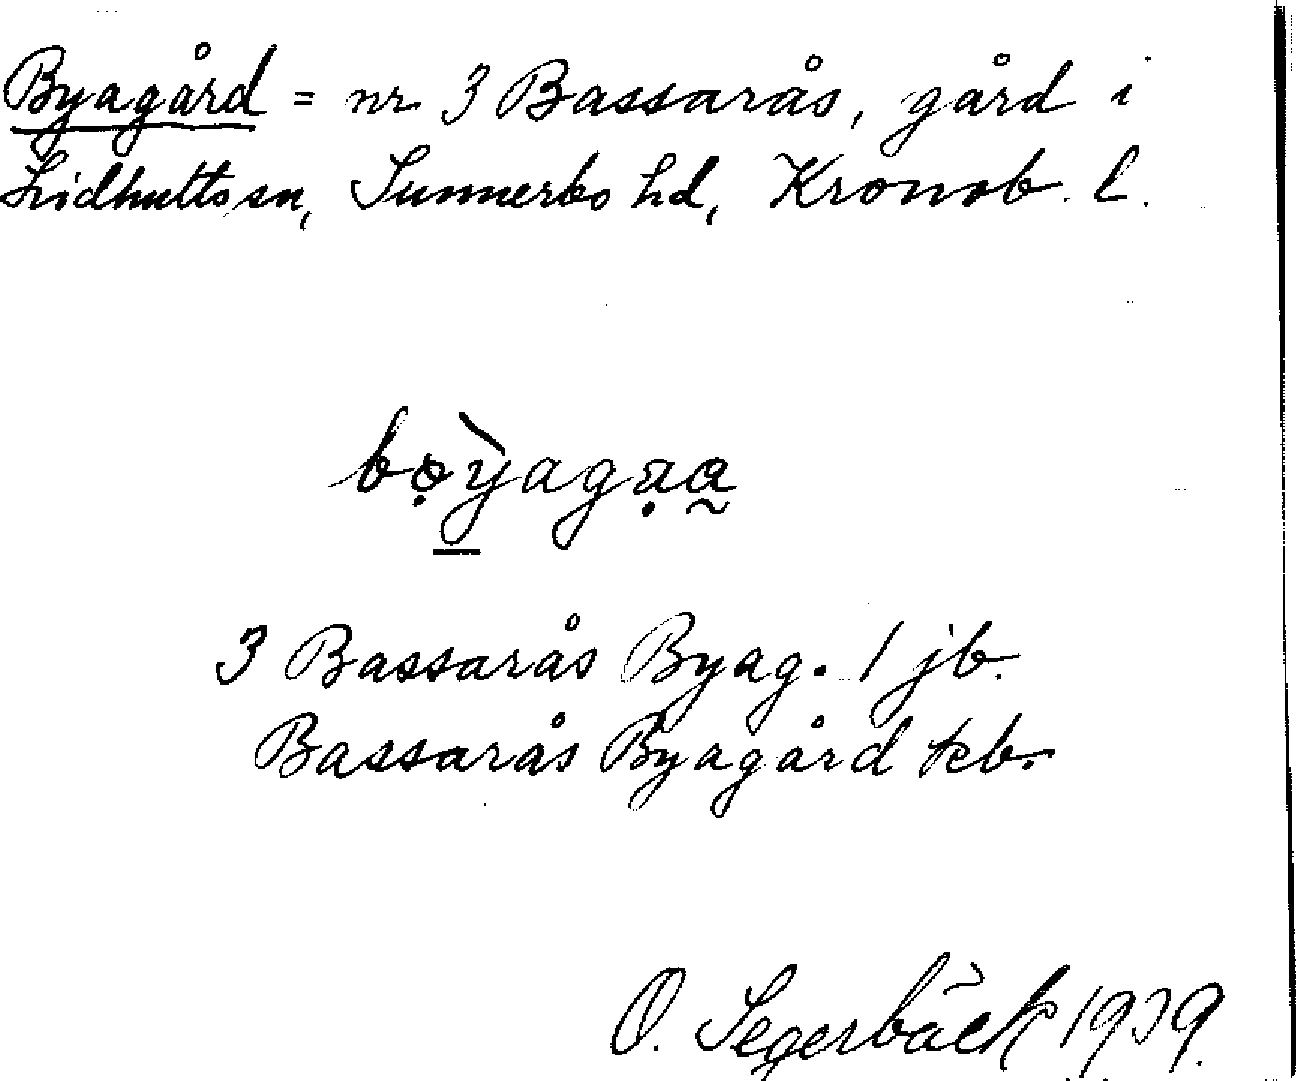 Byagård = nr 3 Bassarås, gård i
Lidhults sn, Sunnerbo hd, Kronob. l.
bø̣̀yagạa̰
3 Bassarås Byag. 1 jb.
Bassarås Byagård kb.
O. Segerbäck 1939.